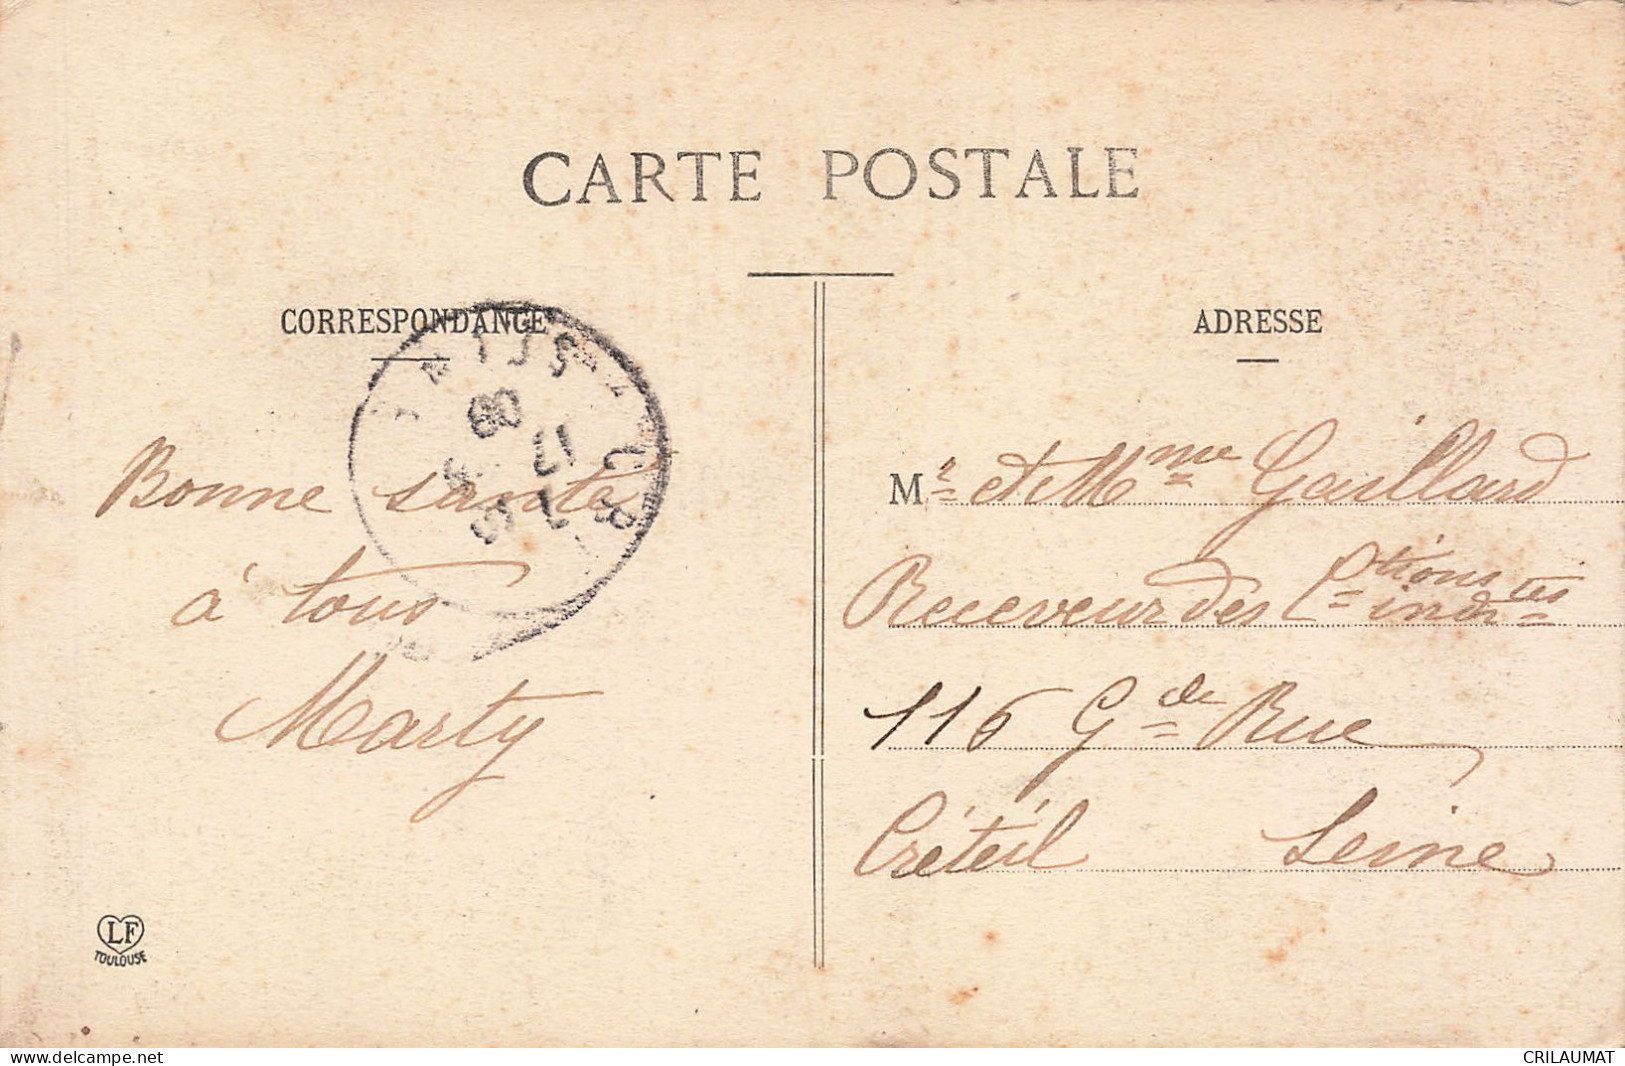 CARTE POSTALE
CORRESPONDANCE
ADRESSE
Bonne santé
à tous
Marty
Mr et Mme Gaillard
Receveur des Ctions indtes
116 Gde Rue
Créteil Seine
LF
TOULOUSE
www.delcampe.net
CRILAUMAT